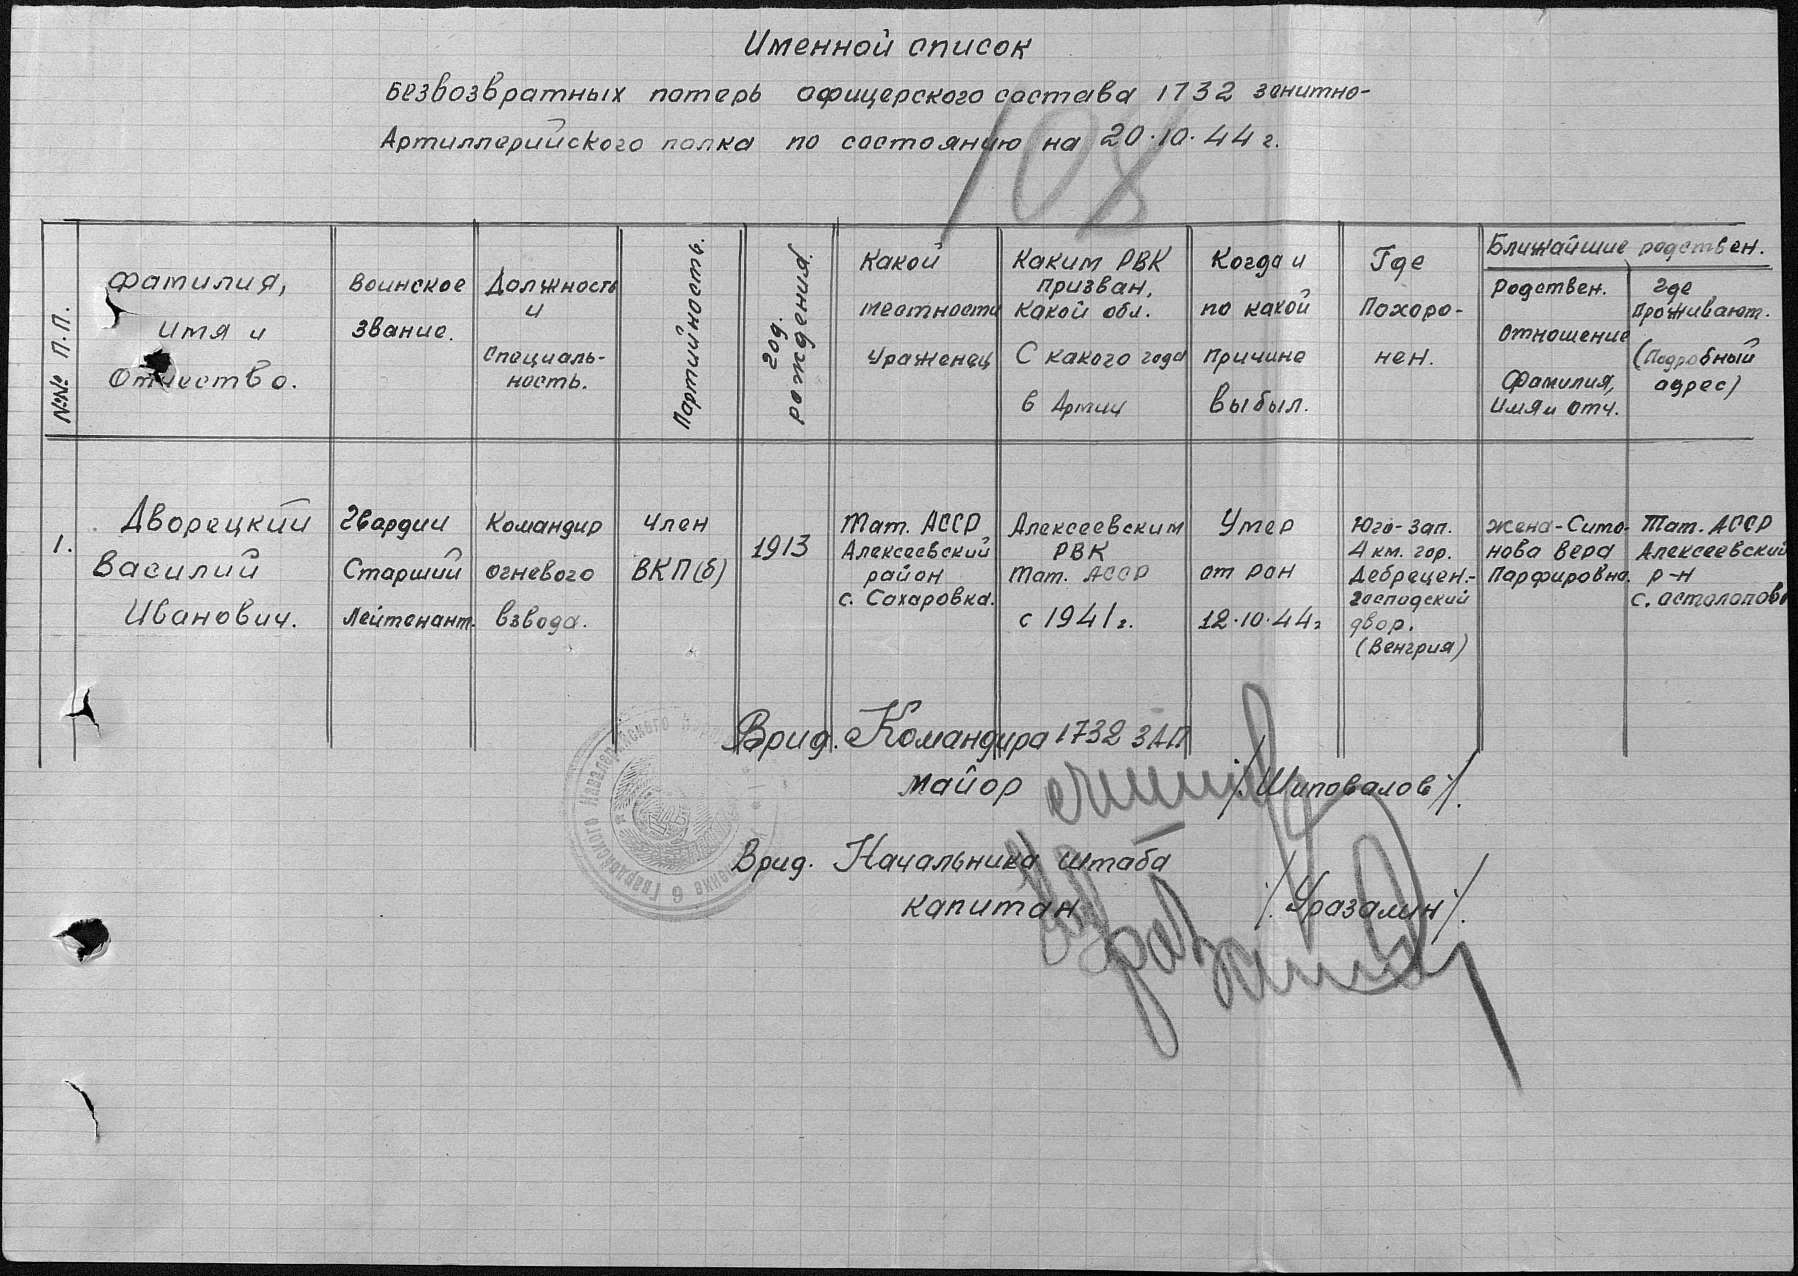 Именной список
безвозвратных потерь офицерского состава 1732 зенитно-
Артиллерийского полка по состоянию на 20.10.44 г.
108
№№ п.п.
Фамилия,
имя и
Отчество.
Воинское
звание.
Должность
и
специаль-
ность.
Партийность.
год
рождения.
Какой
местности
Уроженец
Каким РВК
призван,
какой обл.
С какого года
в Армии
Когда и
по какой
причине
выбыл.
Где
Похоро-
нен.
Ближайшие родствен.
Родствен.
отношение
Фамилия,
имя и отч.
Где
проживают.
(Подробный
адрес)
1.
Дворецкий
Василий
Иванович.
Гвардии
Старший
Лейтенант.
Командир
огневого
взвода.
Член
ВКП(б)
1913
Тат. АССР
Алексеевский
район
с. Сахаровка.
Алексеевским
РВК
Тат. АССР
с 1941 г.
Умер
от ран
12.10.44 г
Юго-зап.
4 км. гор.
Дебрецен.-
господский
двор.
(Венгрия)
жена-Сито-
нова Вера
Парфировна.
Тат. АССР
Алексеевский
р-н
с. Астолопово
Врид. Командира 1732 ЗАП
майор /Шиповалов/.
Врид. Начальника штаба
капитан /Уразалин/.
6 Гвардейского Кавалерийского